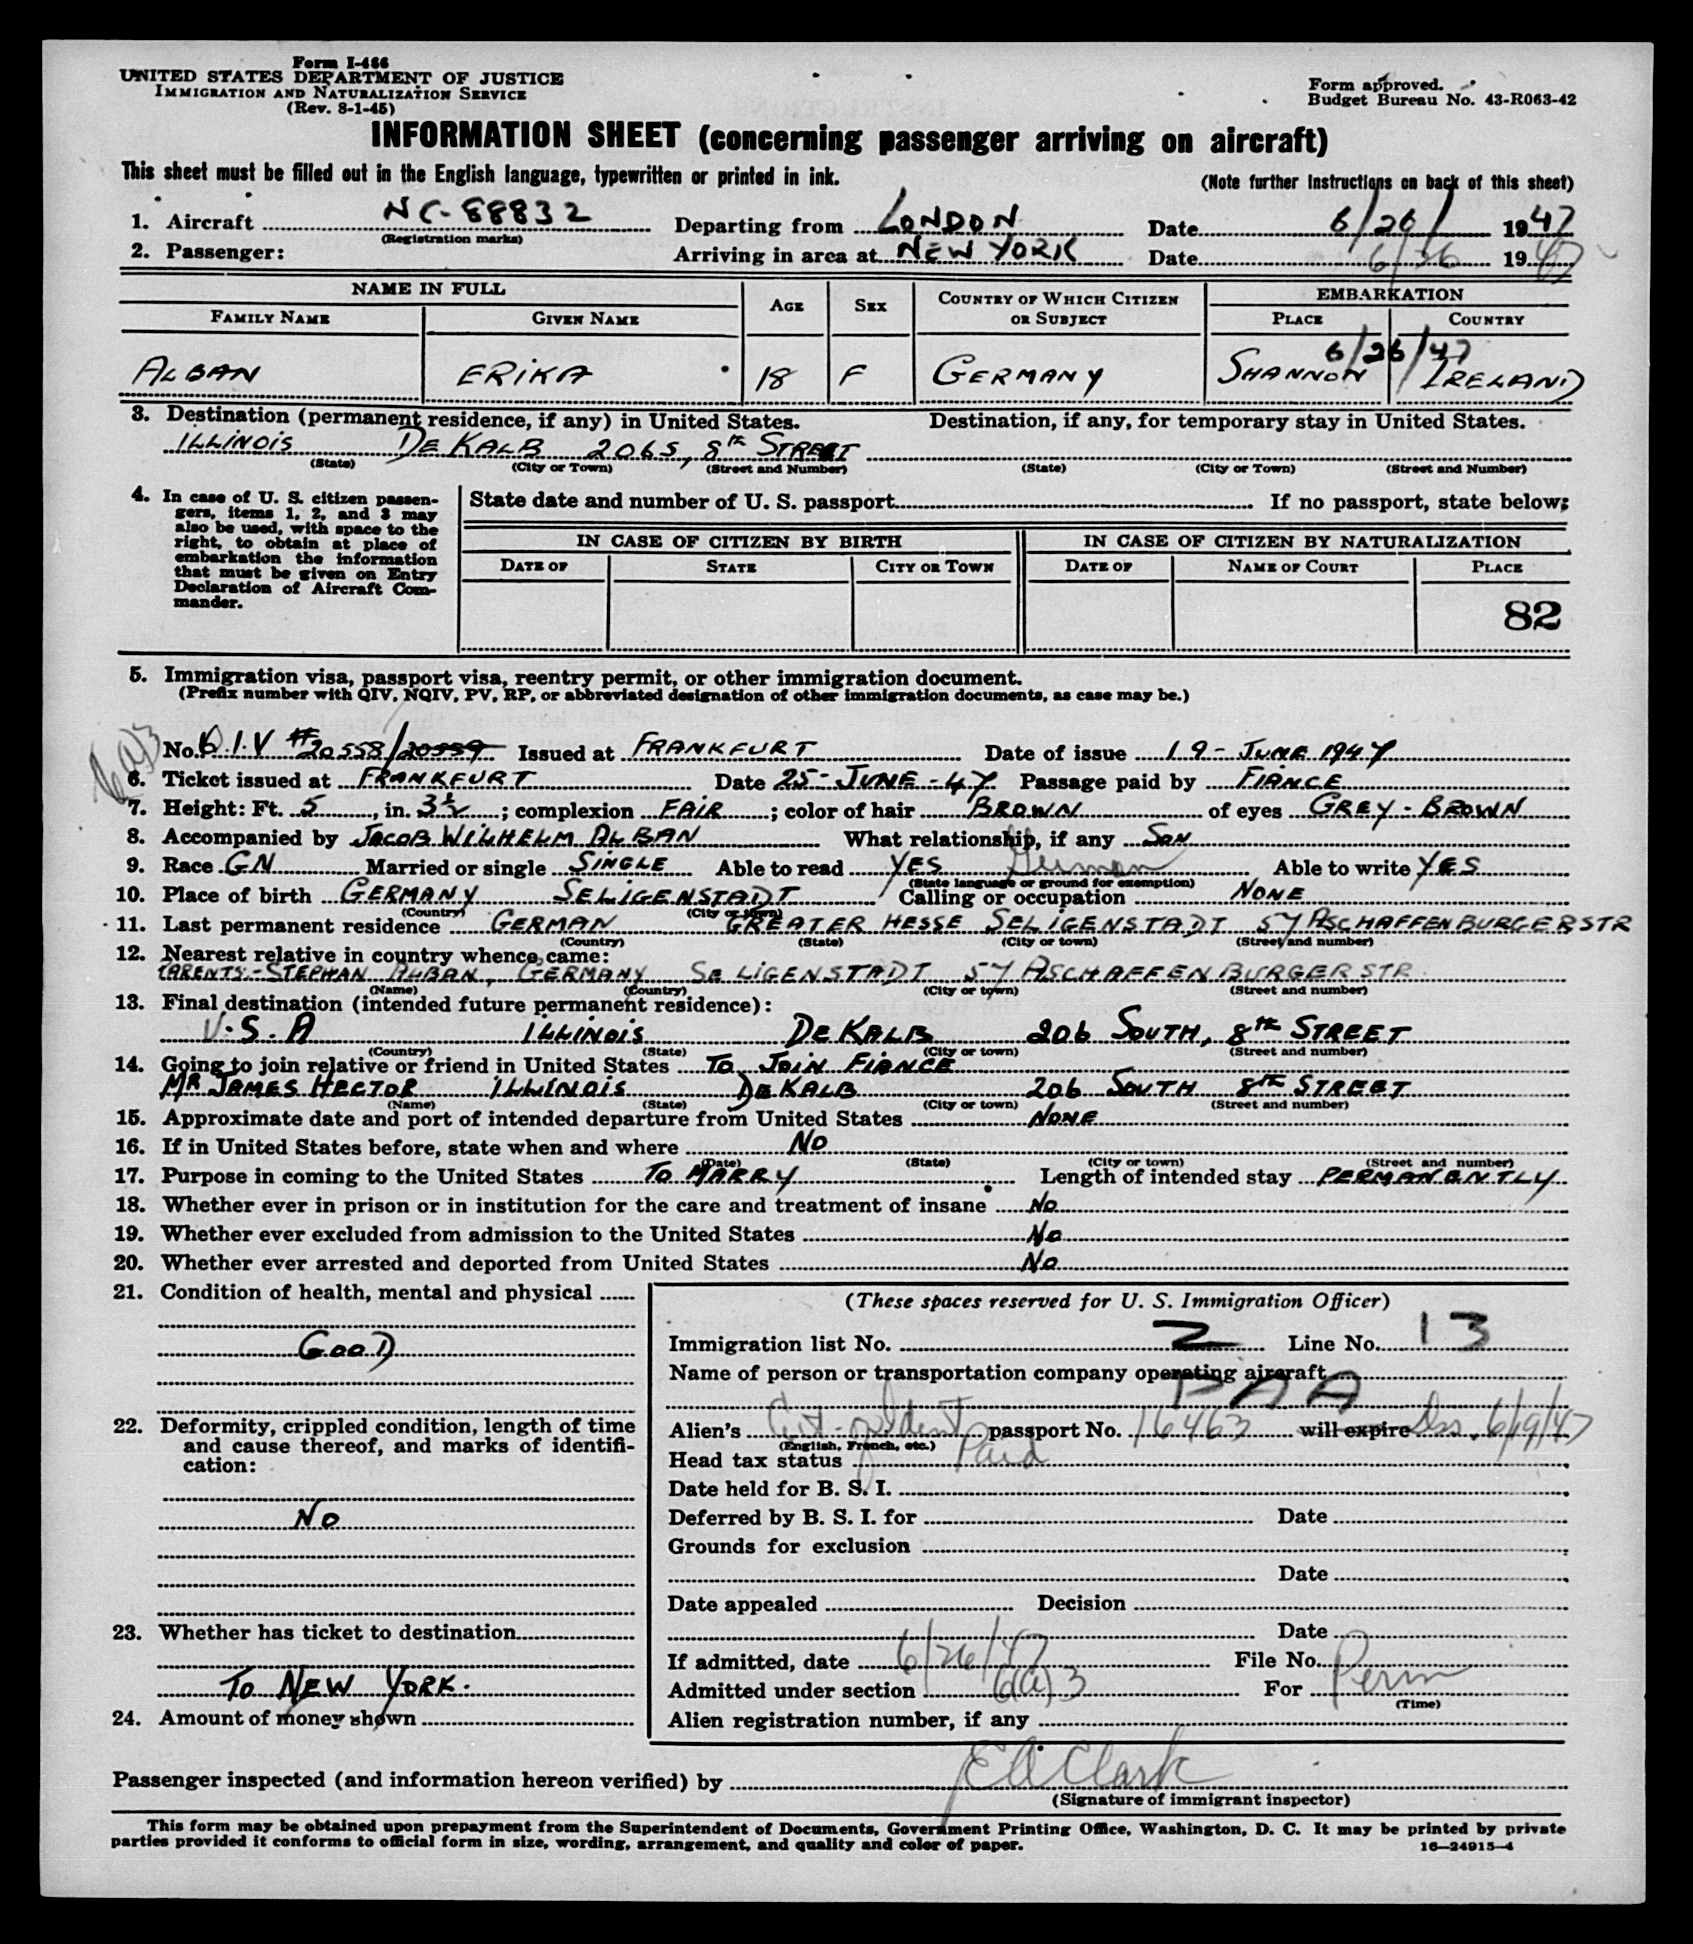 Form I-466
UNITED STATES DEPARTMENT OF JUSTICE
IMMIGRATION AND NATURALIZATION SERVICE
(Rev. 8-1-45)
Form approved.
Budget Bureau No. 43-R063-42
INFORMATION SHEET (concerning passenger arriving on aircraft)
This sheet must be filled out in the English language, typewritten or printed in ink.
(Note further instructions on back of this sheet)
1. Aircraft NC-88832 Departing from LONDON Date 6/26/ 1947
(Registration marks)
2. Passenger: Arriving in area at NEW YORK Date 6/26 1947
NAME IN FULL AGE SEX COUNTRY OF WHICH CITIZEN OR SUBJECT EMBARKATION
FAMILY NAME GIVEN NAME PLACE COUNTRY
6/26/47
ALBAN ERIKA 18 F GERMANY SHANNON IRELAND
3. Destination (permanent residence, if any) in United States. Destination, if any, for temporary stay in United States.
ILLINOIS DE KALB 206 S, 8TH STREET
(State) (City or Town) (Street and Number) (State) (City or Town) (Street and Number)
4. In case of U. S. citizen passengers, items 1, 2, and 3 may also be used, with space to the right, to obtain at place of embarkation the information that must be given on Entry Declaration of Aircraft Commander.
State date and number of U. S. passport If no passport, state below:
IN CASE OF CITIZEN BY BIRTH IN CASE OF CITIZEN BY NATURALIZATION
DATE OF STATE CITY OR TOWN DATE OF NAME OF COURT PLACE
82
5. Immigration visa, passport visa, reentry permit, or other immigration document.
(Prefix number with QIV, NQIV, PV, RP, or abbreviated designation of other immigration documents, as case may be.)
6(a)3
No. Q.I.V # 20558/20559 Issued at FRANKFURT Date of issue 19-JUNE 1947
6. Ticket issued at FRANKFURT Date 25-JUNE-47 Passage paid by FIANCE
7. Height: Ft. 5, in. 3½; complexion FAIR; color of hair BROWN of eyes GREY-BROWN
8. Accompanied by JACOB WILHELM ALBAN What relationship, if any SON
9. Race GN Married or single SINGLE Able to read YES German Able to write YES
(State language or ground for exemption)
10. Place of birth GERMANY SELIGENSTADT Calling or occupation NONE
(Country) (City or town)
11. Last permanent residence GERMAN GREATER HESSE SELIGENSTADT 57 ASCHAFFENBURGERSTR
(Country) (State) (City or town) (Street and number)
12. Nearest relative in country whence came:
PARENTS-STEPHAN ALBAN, GERMANY SELIGENSTADT 57 ASCHAFFENBURGERSTR.
(Name) (Country) (City or town) (Street and number)
13. Final destination (intended future permanent residence):
U.S.A ILLINOIS DE KALB 206 SOUTH, 8TH STREET
(Country) (State) (City or town) (Street and number)
14. Going to join relative or friend in United States TO JOIN FIANCE
MR JAMES HECTOR ILLINOIS DE KALB 206 SOUTH 8TH STREET
(Name) (State) (City or town) (Street and number)
15. Approximate date and port of intended departure from United States NONE
16. If in United States before, state when and where NO
(Date) (State) (City or town) (Street and number)
17. Purpose in coming to the United States TO MARRY Length of intended stay PERMANENTLY
18. Whether ever in prison or in institution for the care and treatment of insane NO
19. Whether ever excluded from admission to the United States NO
20. Whether ever arrested and deported from United States NO
21. Condition of health, mental and physical
GOOD
22. Deformity, crippled condition, length of time and cause thereof, and marks of identification:
NO
23. Whether has ticket to destination
TO NEW YORK.
24. Amount of money shown
(These spaces reserved for U. S. Immigration Officer)
Immigration list No. 2 Line No. 13
Name of person or transportation company operating aircraft
PAA
Alien's passport No. 16463 will expire Iss. 6/19/47
(English, French, etc.)
Head tax status Paid
Date held for B. S. I.
Deferred by B. S. I. for Date
Grounds for exclusion
Date
Date appealed Decision
Date
If admitted, date 6/26/47 File No.
Admitted under section 6(a)3 For Perm
(Time)
Alien registration number, if any
Passenger inspected (and information hereon verified) by E A Clark
(Signature of immigrant inspector)
This form may be obtained upon prepayment from the Superintendent of Documents, Government Printing Office, Washington, D. C. It may be printed by private
parties provided it conforms to official form in size, wording, arrangement, and quality and color of paper.
16—24915-4